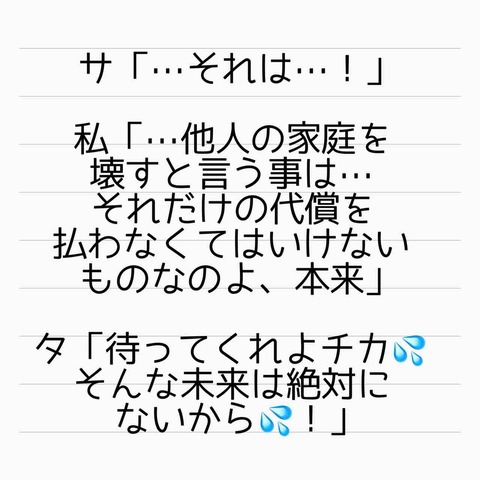 サ「…それは…！」
私「…他人の家庭を
壊すと言う事は…
それだけの代償を
払わなくてはいけない
ものなのよ、本来」
タ「待ってくれよチカ💦
そんな未来は絶対に
ないから💦！」